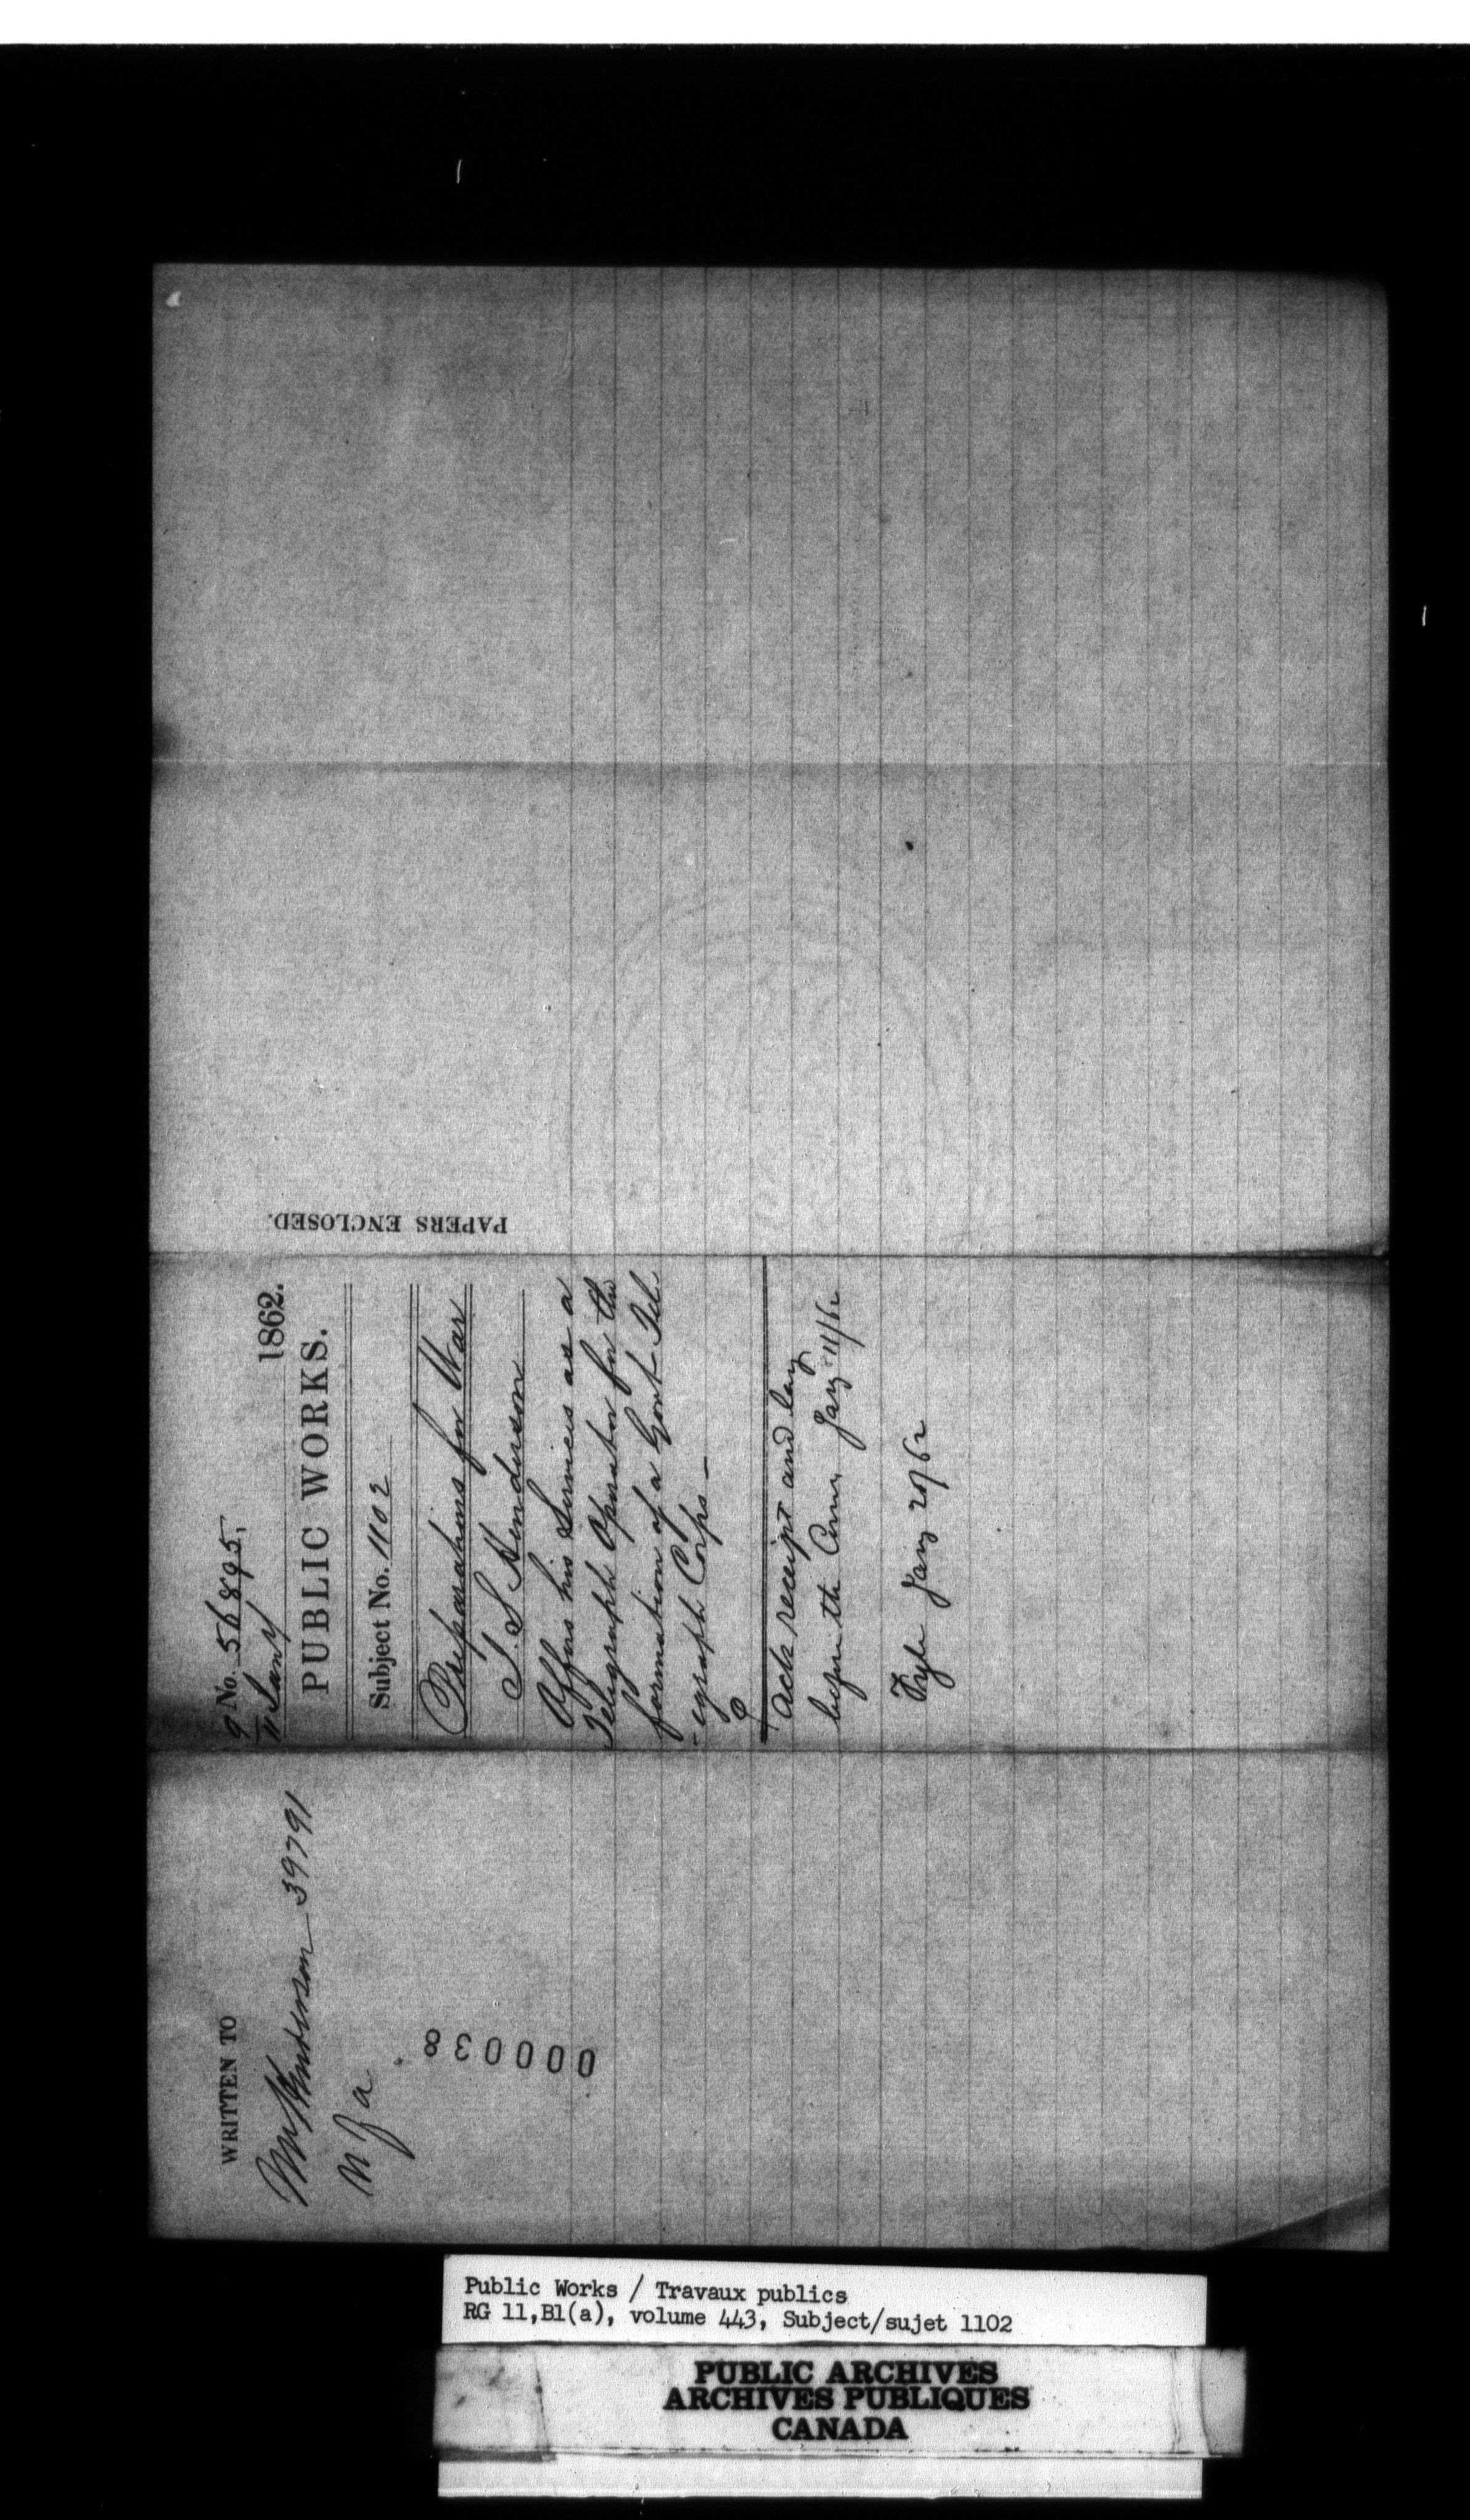 WRITTEN TO
Mr Henderson 39791
000038
9 No. 56895.
11 Jany 1862.
PUBLIC WORKS.
Subject No. 1102
Preparations for War
T. S Henderson
Offers his Services as a
Telegraph Operator for the
formation of a Govt Tel-
-egraph Corps —
Ack receipt and lay
before the Comr. Jany 11/62
Fyle Jany 20/62
PAPERS ENCLOSED.
Public Works / Travaux publics
RG 11,B1(a), volume 443, Subject/sujet 1102
PUBLIC ARCHIVES
ARCHIVES PUBLIQUES
CANADA